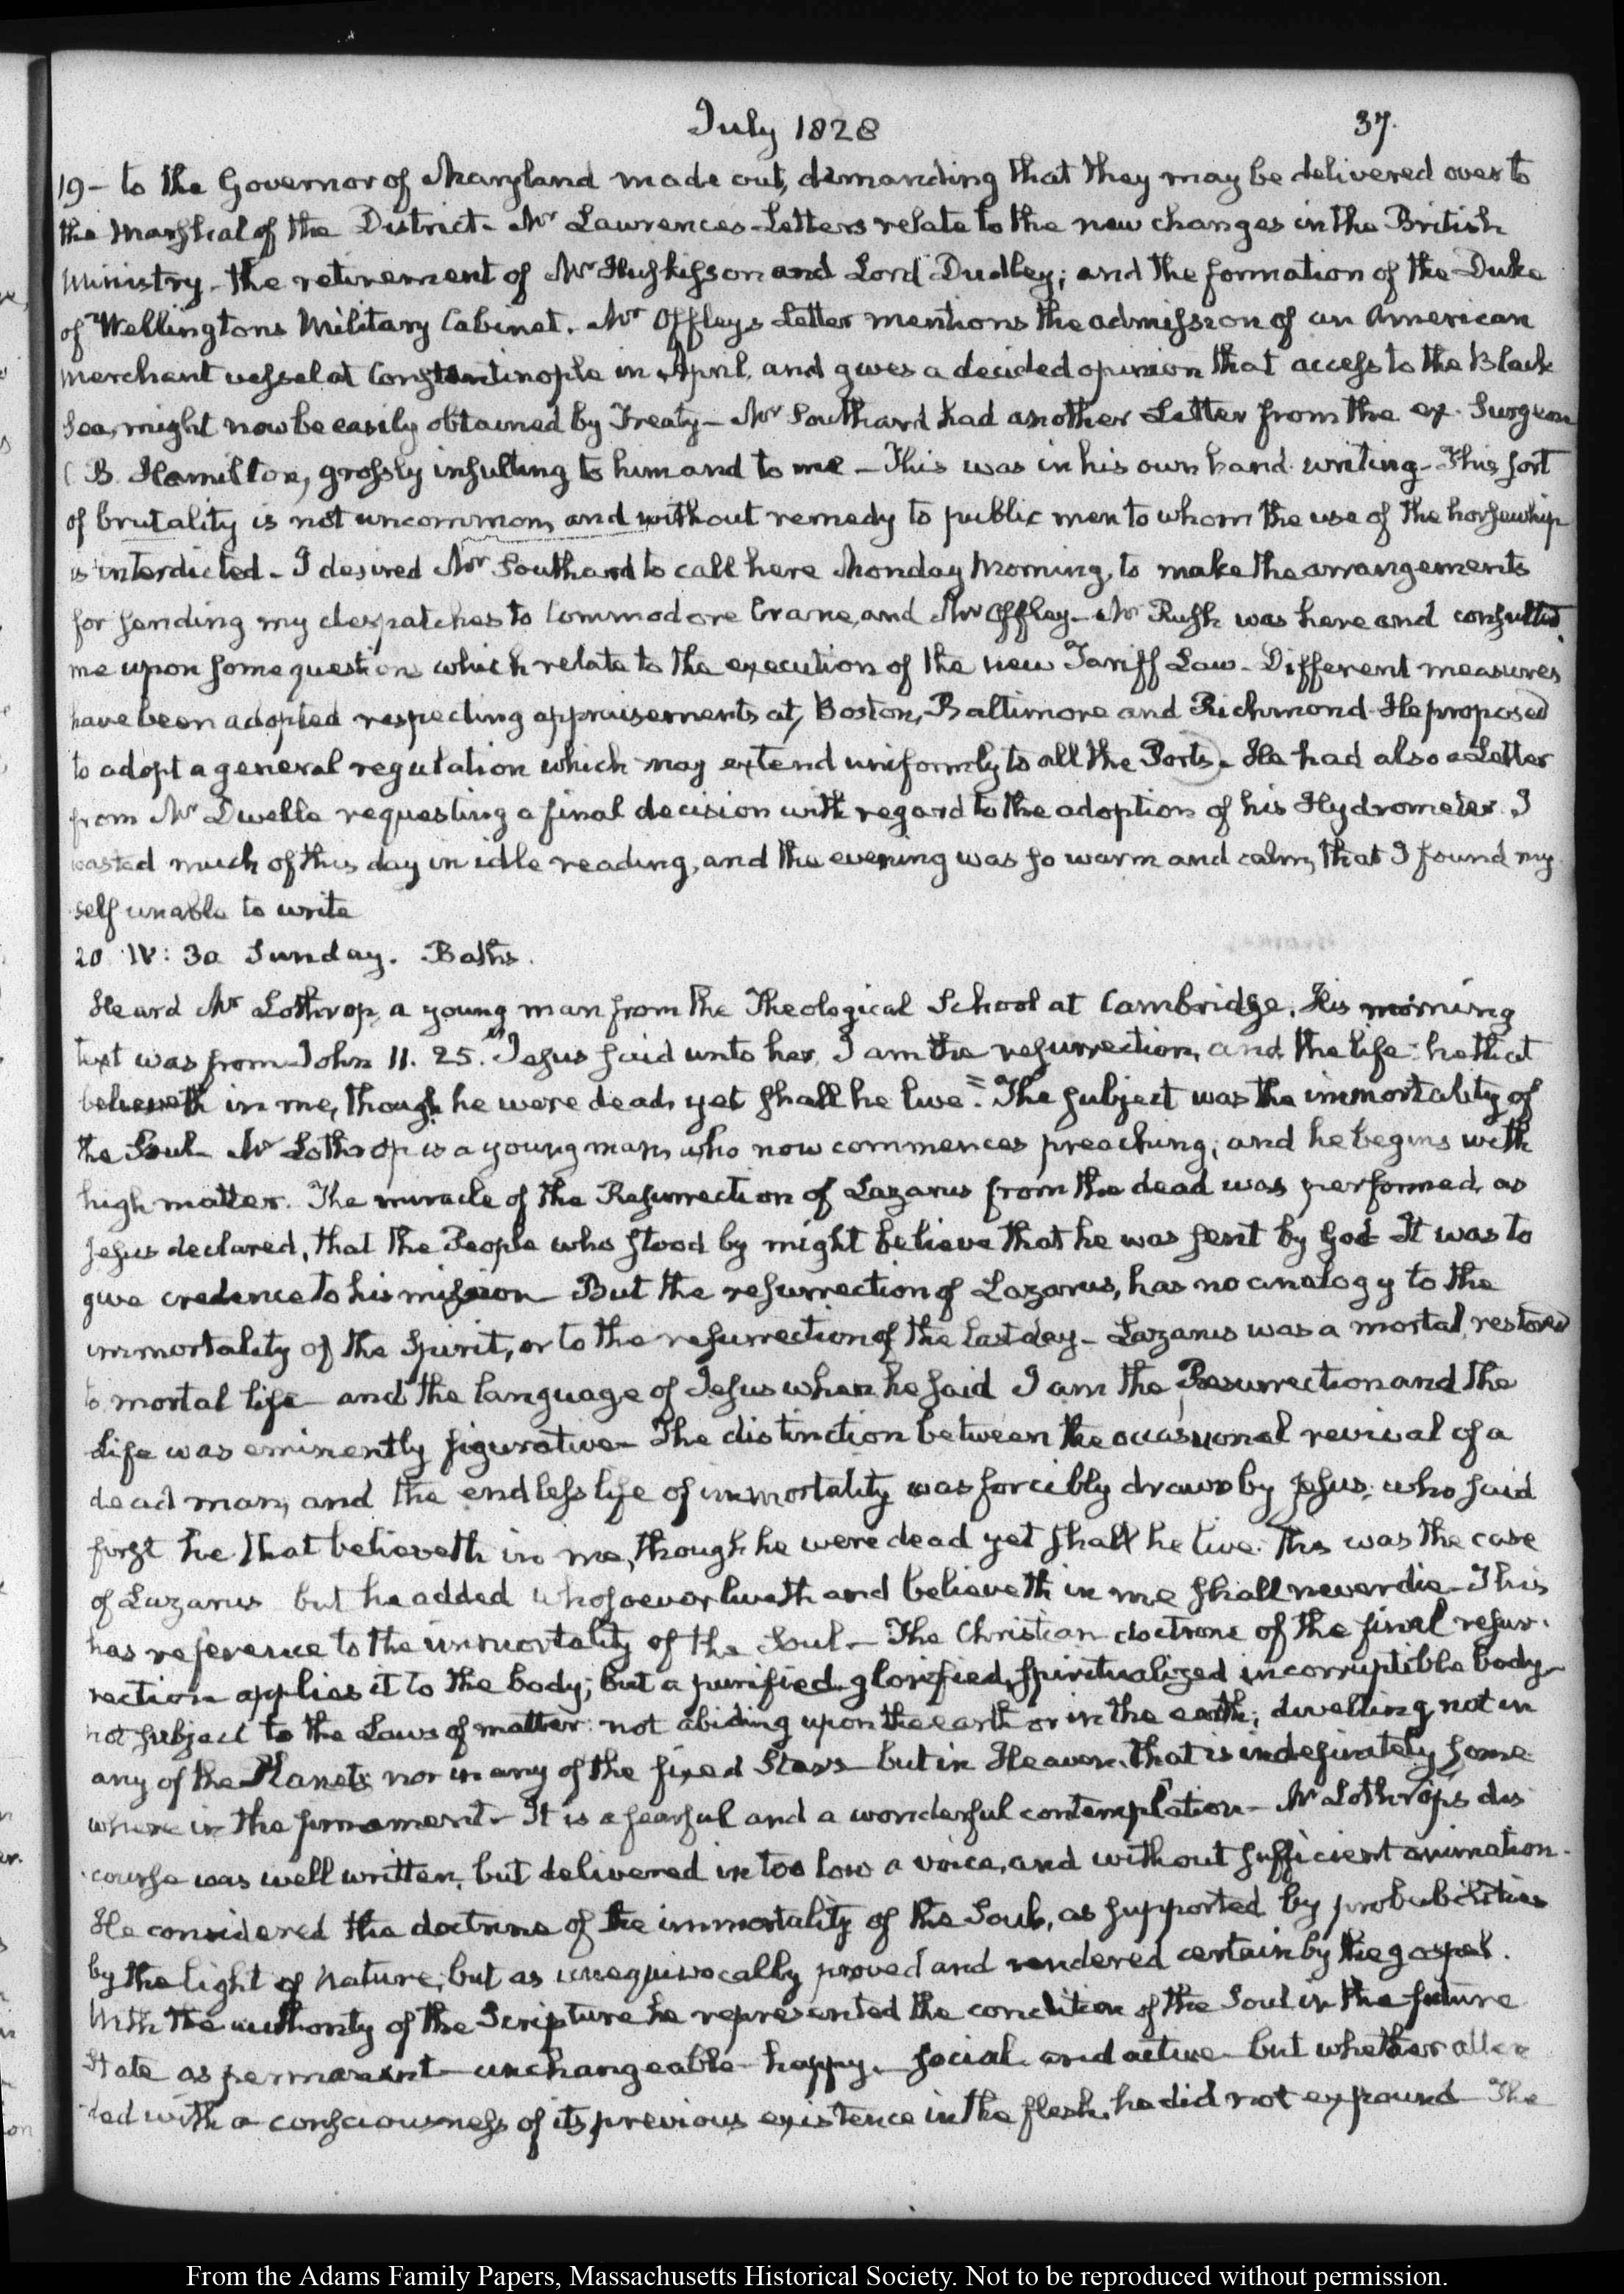 July 1828
37.
19- to the Governor of Maryland made out, demanding that they may be delivered over to
the Marshal of the District- Mr Lawrences Letters relate to the new changes in the British
Ministry- the retirement of Mr Huskisson and Lord Dudley; and the formation of the Duke
of Wellingtons Military Cabinet. Mr Offleys Letter mentions the admission of an American
merchant vessel at Constantinople in April, and gives a decided opinion that access to the Black
Sea, might now be easily obtained by Treaty- Mr Southard had another Letter from the ex-Surgeon
C B. Hamilton, grossly insulting to him and to me- This was in his own hand-writing- This sort
of brutality is not uncommon, and without remedy to public men to whom the use of the horsewhip
is interdicted- I desired Mr Southard to call here Monday Morning, to make the arrangements
for sending my despatches to Commodore Crane, and Mr Offley- Mr Rush was here and consulted
me upon some questions which relate to the execution of the new Tariff Law- Different measures
have been adopted respecting appraisements at, Boston, Baltimore and Richmond- He proposed
to adopt a general regulation which may extend uniformly to all the Ports. He had also a Letter
from Mr Dwelle requesting a final decision with regard to the adoption of his Hydrometer. I
wasted much of this day in idle reading, and the evening was so warm and calm, that I found my
self unable to write
20 IV: 30 Sunday. Baths.
Heard Mr Lothrop, a young man from the Theological School at Cambridge. His morning
text was from John 11. 25. "Jesus said unto her, I am the resurrection, and the life: he that
believeth in me, though he were dead, yet shall he live". The subject was the immortality of
the Soul- Mr Lothrop is a young man, who now commences preaching; and he begins with
high matter. The miracle of the Resurrection of Lazarus from the dead was performed, as
Jesus declared, that the People who stood by might believe that he was sent by God- It was to
give credence to his mission- But the resurrection of Lazarus, has no analogy to the
immortality of the Spirit, or to the resurrection of the last day- Lazarus was a mortal, restored
to mortal life- and the language of Jesus when he said I am the Resurrection and the
Life was eminently figurative- The distinction between the occasional revival of a
dead man, and the endless life of immortality was forcibly drawn by Jesus, who said
first he that believeth in me, though he were dead yet shall he live. This was the case
of Lazarus but he added whosoever liveth and believeth in me shall never die- This
has reference to the immortality of the Soul- The Christian doctrine of the final resur-
rection applies it to the body; but a purified, glorified, spiritualized incorruptible body-
not subject to the Laws of matter: not abiding upon the earth or in the earth; dwelling not in
any of the Planets nor in any of the fixed Stars- but in Heaven. that is indefinitely some
where in the firmament- It is a fearful and a wonderful contemplation- Mr Lothrop's dis
course was well written, but delivered in too low a voice, and without sufficient animation-
He considered the doctrine of the immortality of the Soul, as supported by probabilities
by the light of Nature, but as unequivocally proved and rendered certain by the gospel.
With the authority of the Scripture he represented the condition of the Soul in the future
State as permanent- unchangeable- happy- social and active- but whether atten
ded with a consciousness of its previous existence in the flesh, he did not expound- The
From the Adams Family Papers, Massachusetts Historical Society. Not to be reproduced without permission.